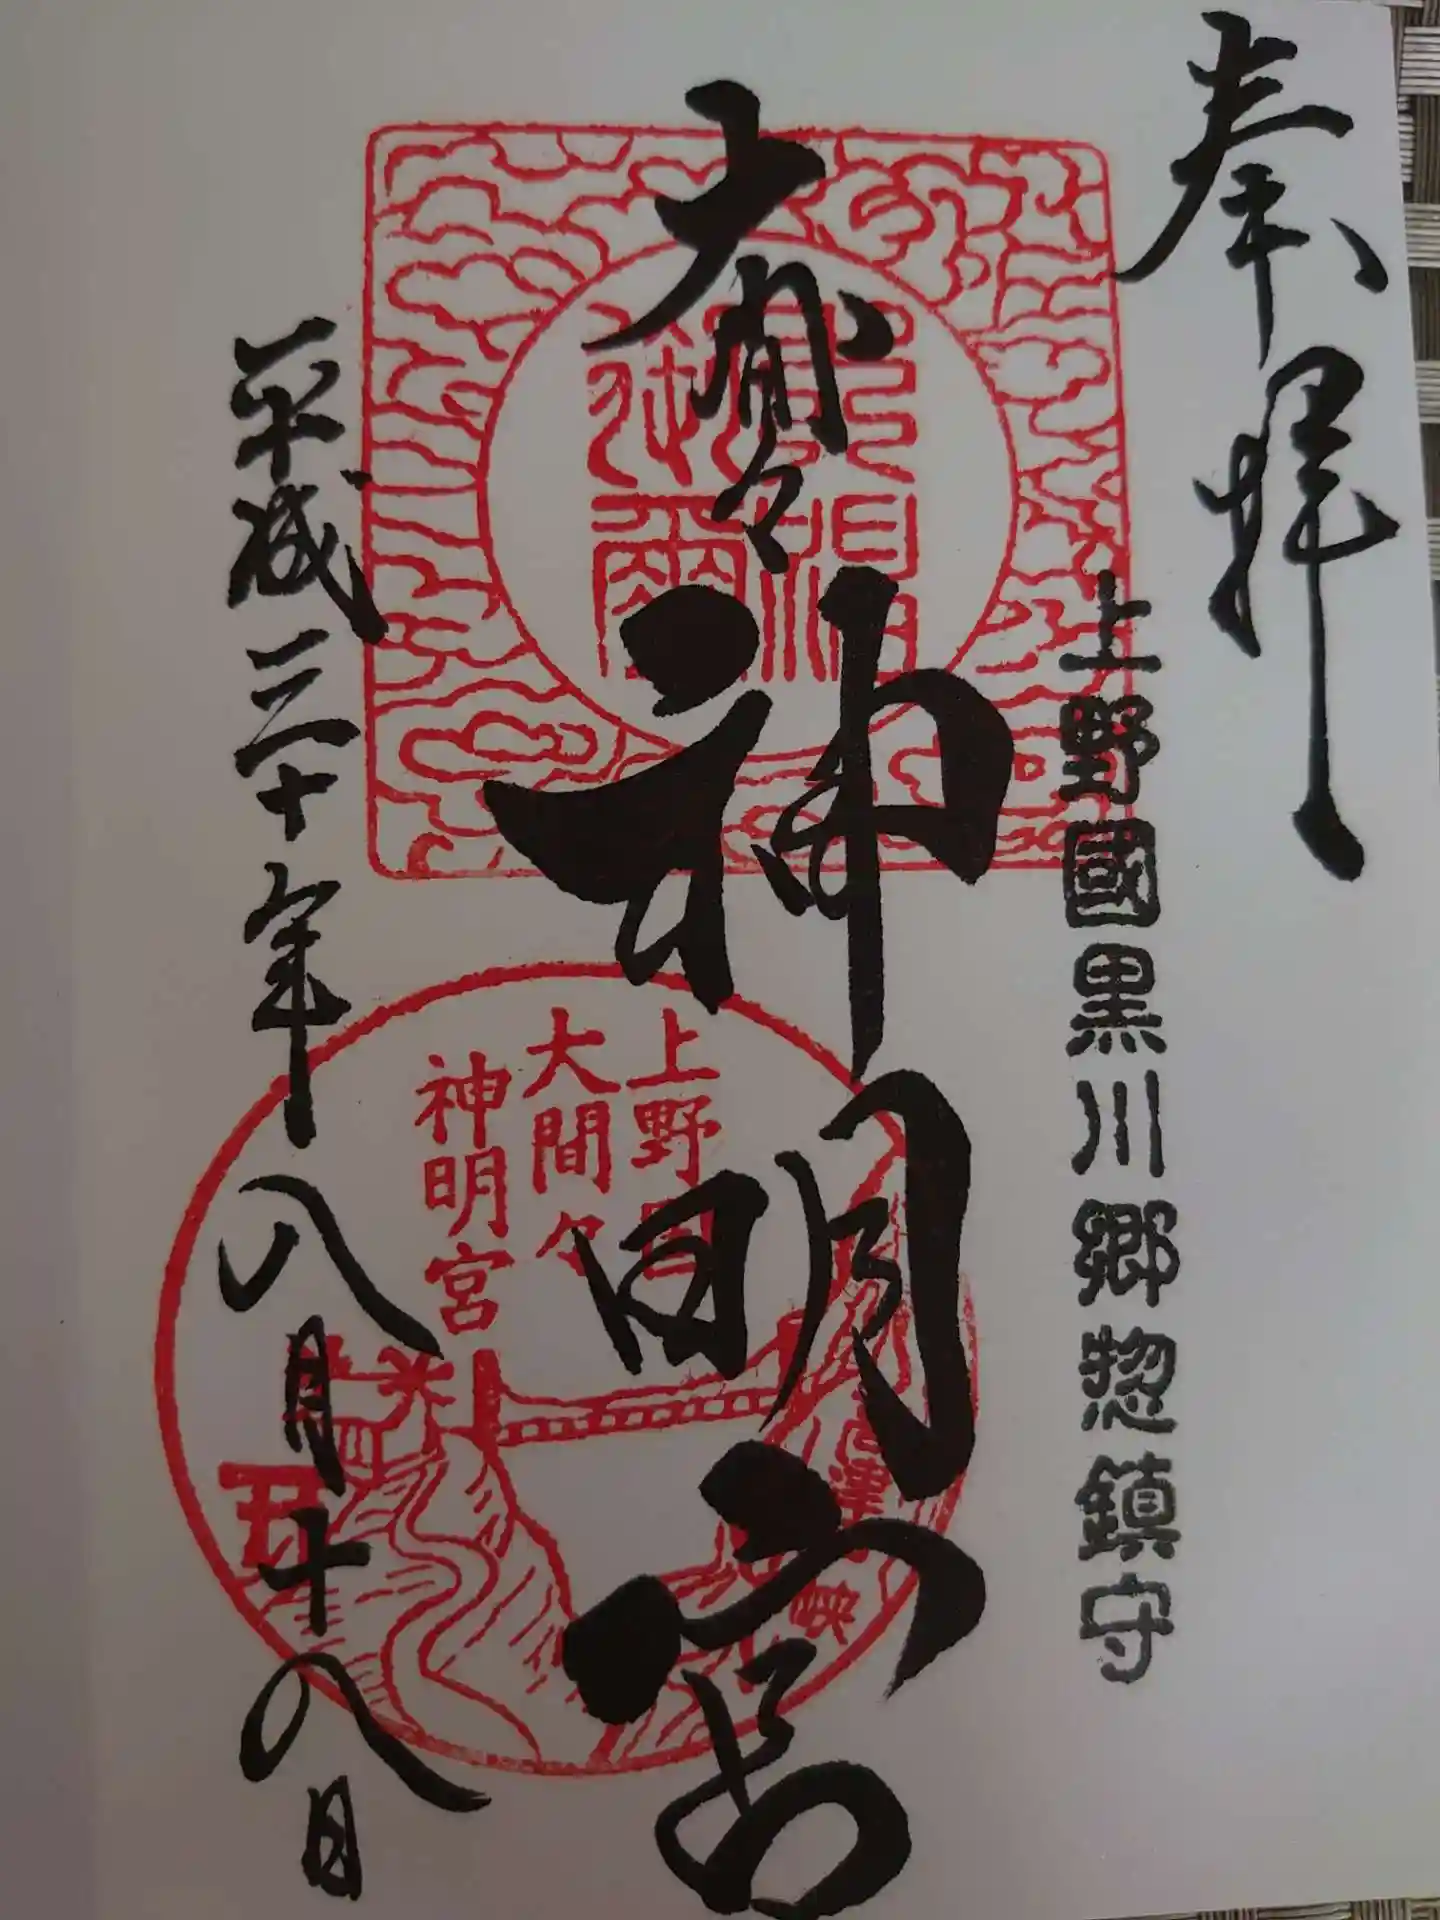 奉拝
上野國黒川郷惣鎮守
大間々
神明宮
平成三十年八月十八日
上野国
大間々
神明宮